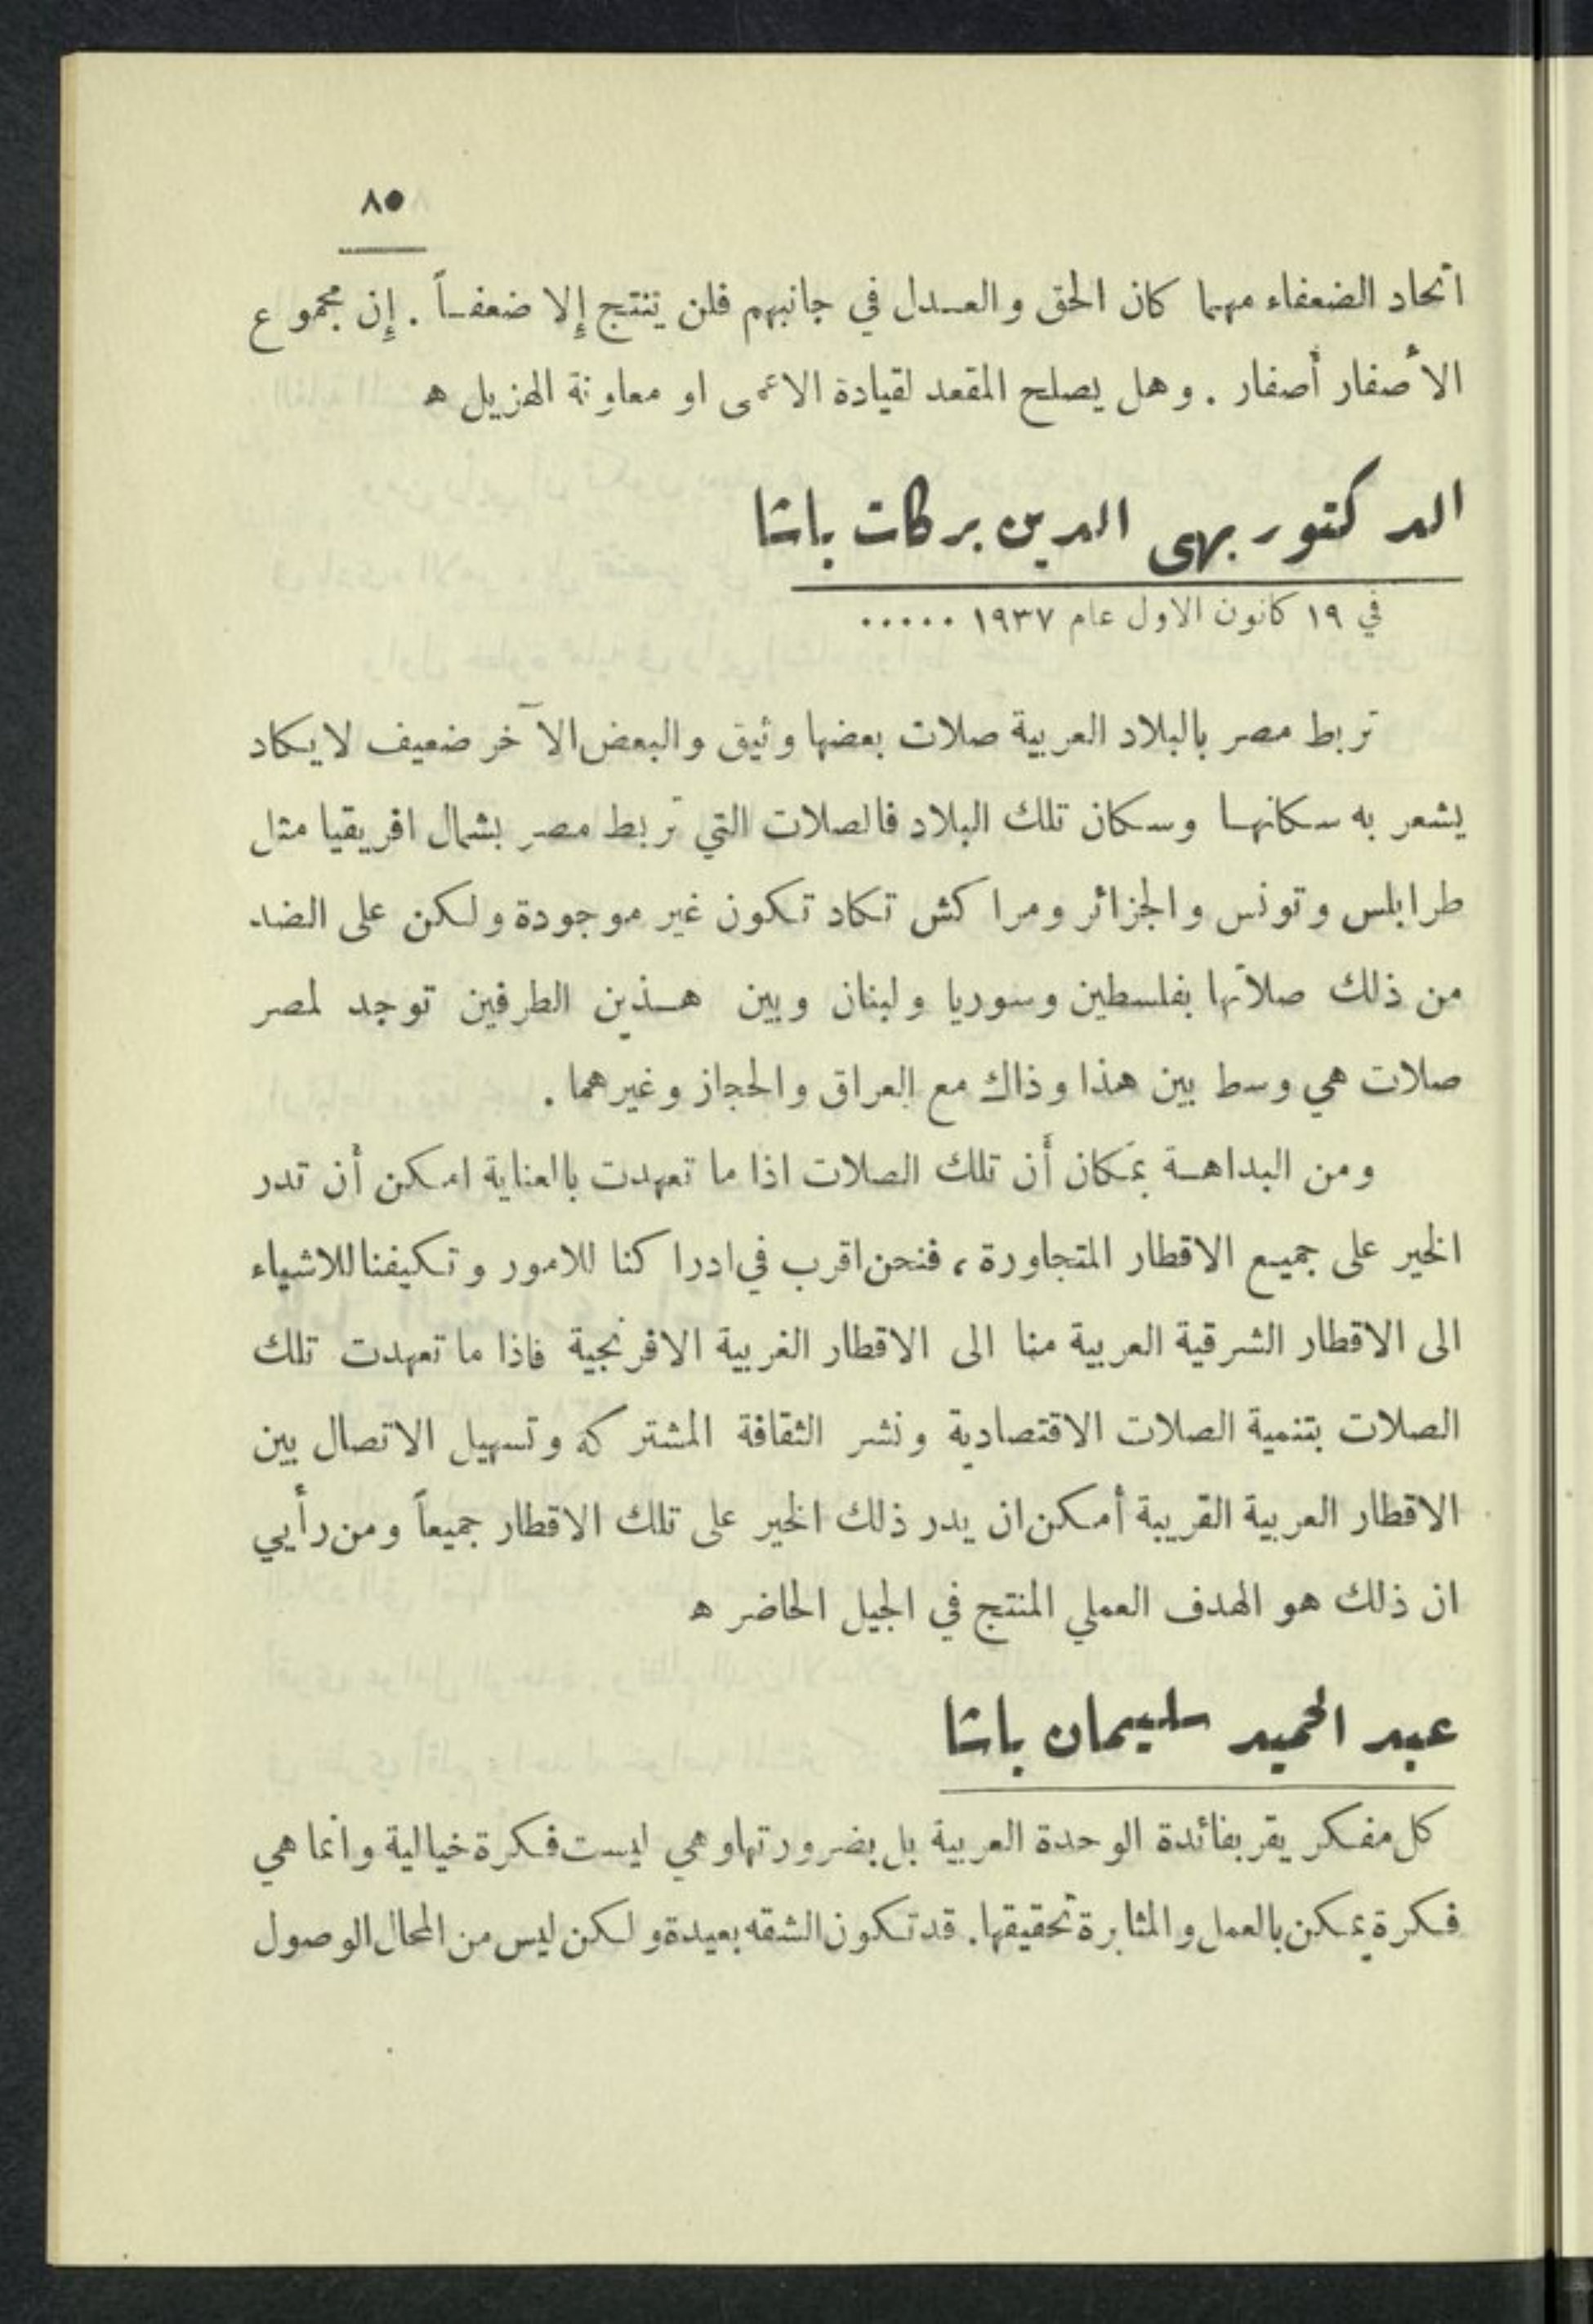 ٨٥
اتحاد الضعفاء مهما كان الحق والعدل في جانبهم فلن ينتج إلا ضعفاً . إن مجموع
الأصفار أصفار . وهل يصلح المقعد لقيادة الاعمى او معاونة الهزيل ه
الدكتور بهى الدين بركات باشا
في ١٩ كانون الاول عام ١٩٣٧ .....
تربط مصر بالبلاد العربية صلات بعضها وثيق والبعض الآخر ضعيف لا يكاد
يشعر به سكانها وسكان تلك البلاد فالصلات التي تربط مصر بشمال افريقيا مثل
طرابلس وتونس والجزائر ومراكش تكاد تكون غير موجودة ولكن على الضد
من ذلك صلاتها بفلسطين وسوريا ولبنان وبين هذين الطرفين توجد لمصر
صلات هي وسط بين هذا وذاك مع العراق والحجاز وغيرهما .
ومن البداهة بمكان أن تلك الصلات اذا ما تعهدت بالعناية امكن أن تدر
الخير على جميع الاقطار المتجاورة ، فنحن اقرب في ادراكنا للامور وتكيفنا للاشياء
الى الاقطار الشرقية العربية منا الى الاقطار الغربية الافرنجية فاذا ما تعهدت تلك
الصلات بتنمية الصلات الاقتصادية ونشر الثقافة المشتركه وتسهيل الاتصال بين
الاقطار العربية القريبة أمكن ان يدر ذلك الخير على تلك الاقطار جميعاً ومن رأيي
ان ذلك هو الهدف العملي المنتج في الجيل الحاضر ه
عبد الحميد سليمان باشا
كل مفكر يقر بفائدة الوحدة العربية بل بضرورتها وهي ليست فكرة خيالية وانما هي
فكرة يمكن بالعمل والمثابرة تحقيقها. قد تكون الشقه بعيدة ولكن ليس من المحال الوصول